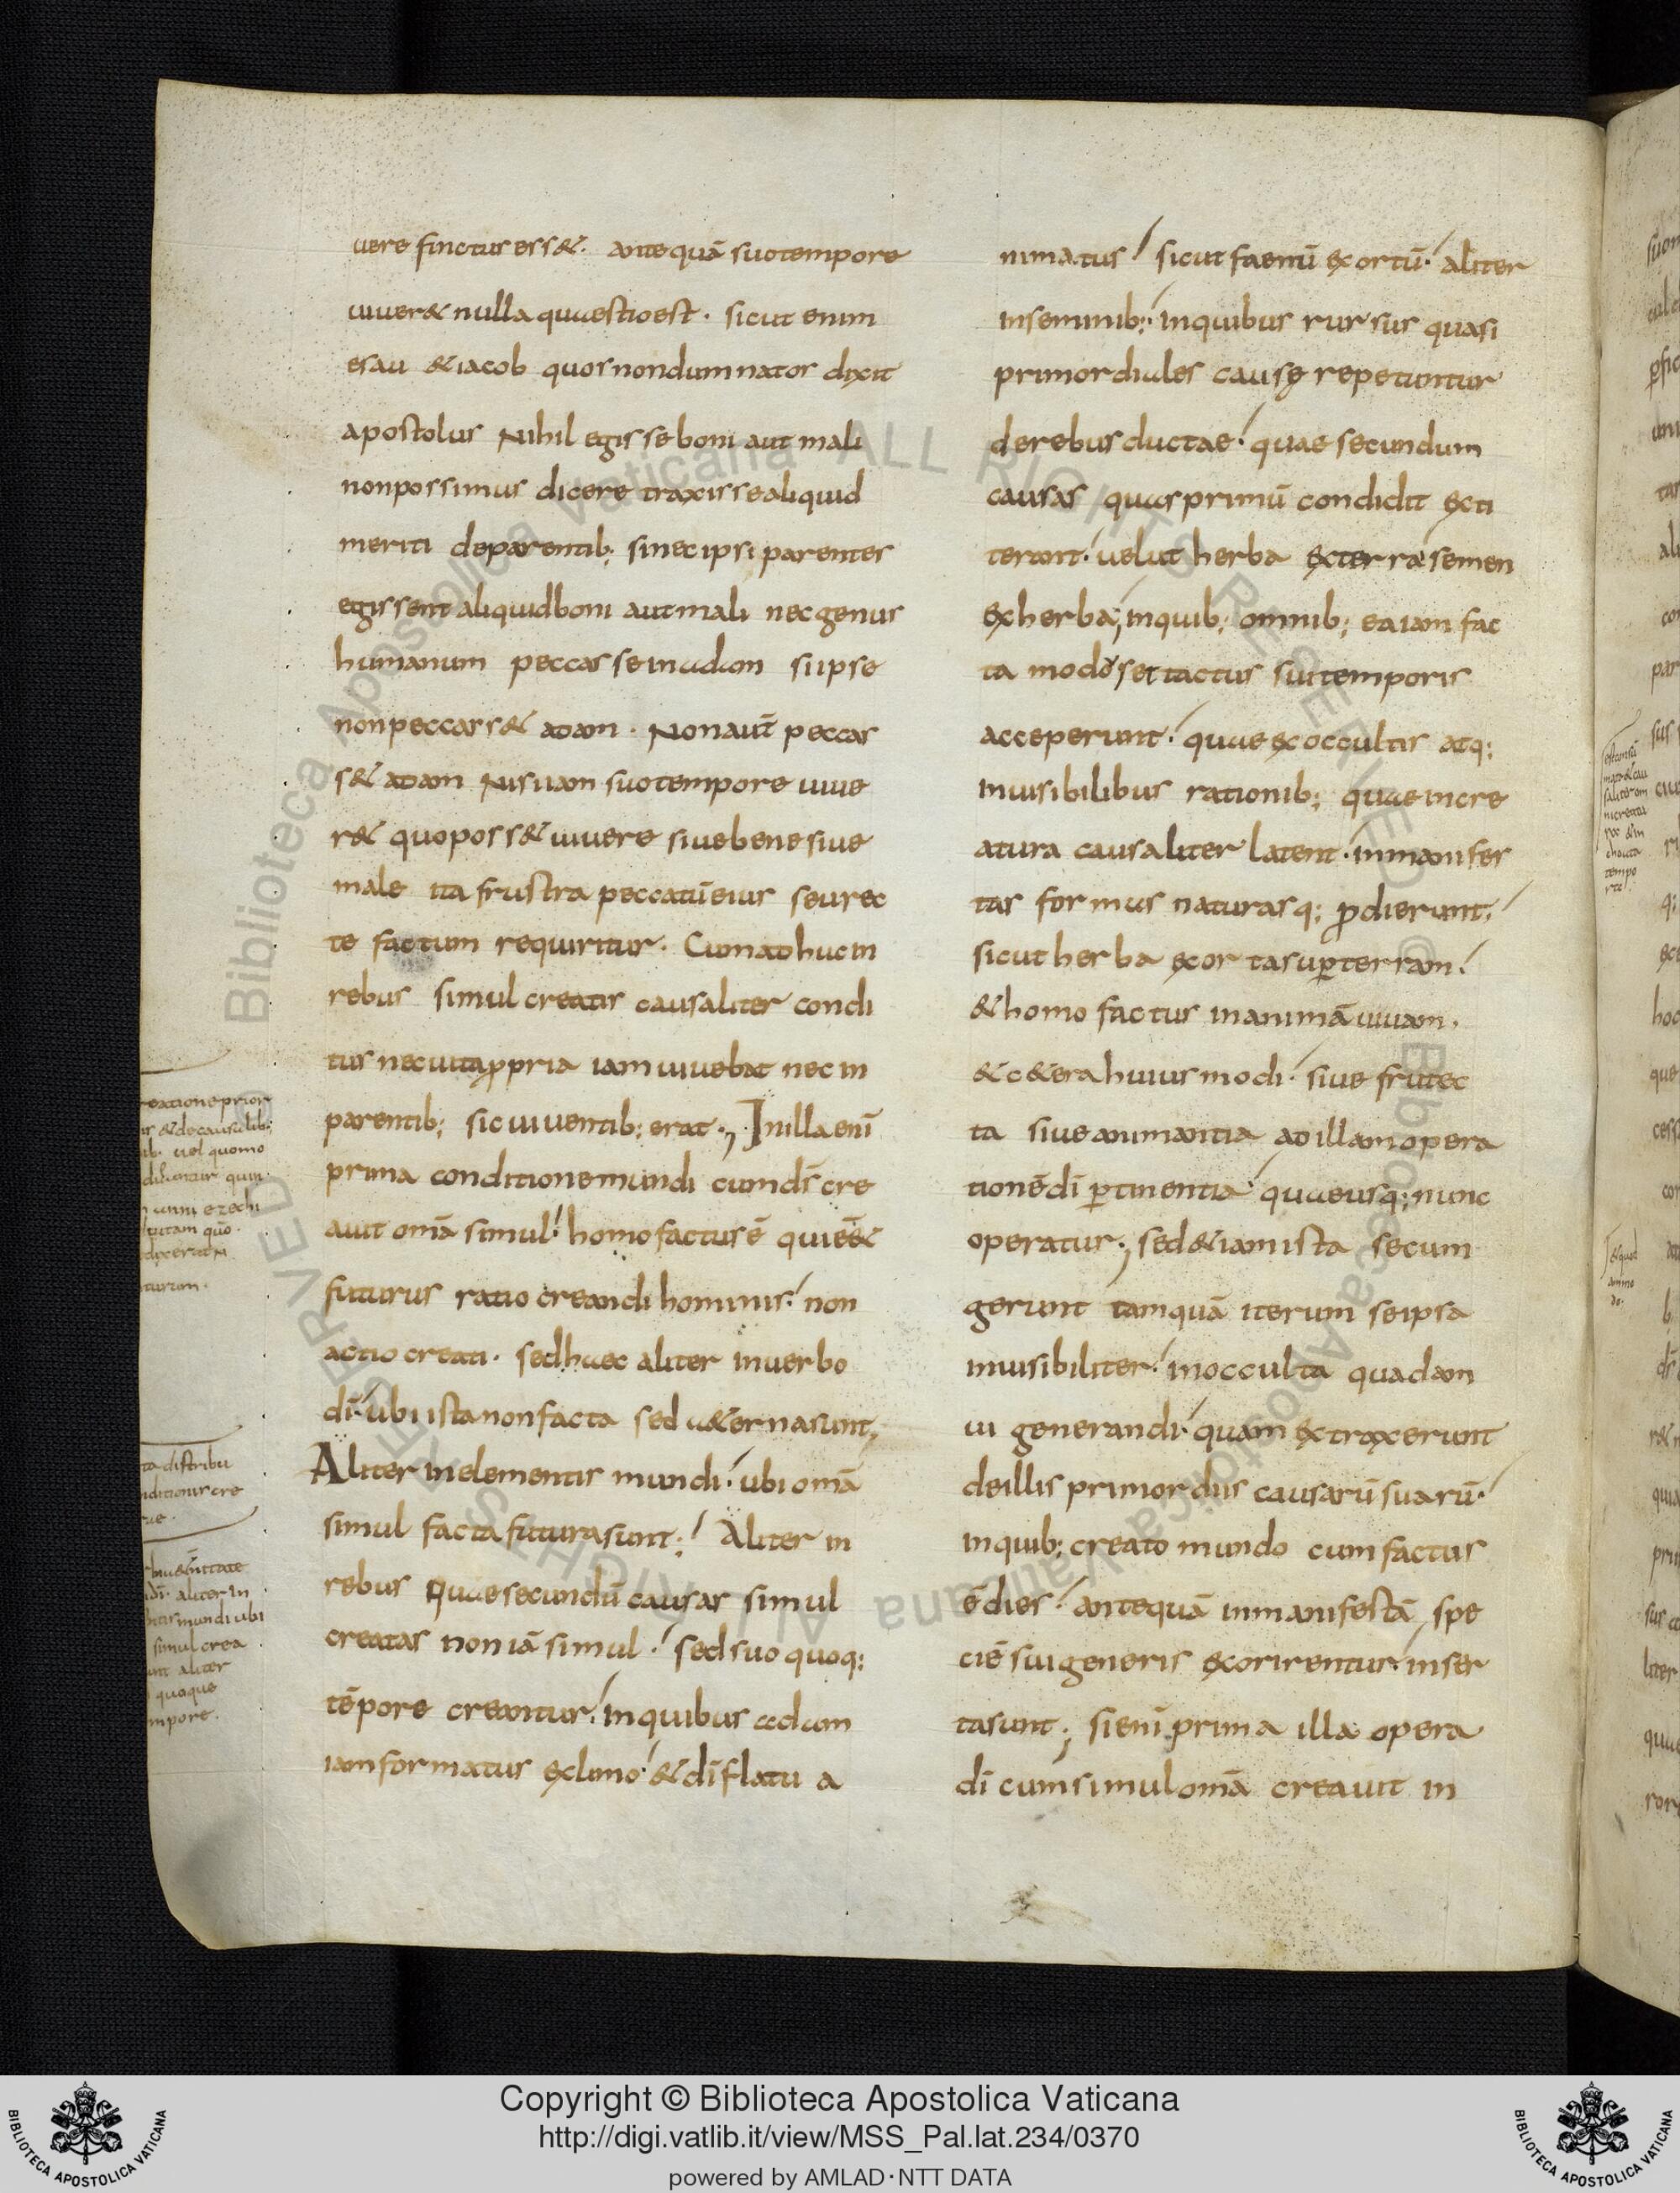 uere finctus ess&. antequā suo tempore
uiuer& nulla quaestio est. sicut enim
esau & iacob quos nondum natos dixit
apostolus Nihil egisse boni aut mali
non possimus dicere traxisse aliquid
meriti de parentib; si nec ipsi parentes
egissent aliquid boni aut mali nec genus
humanum peccasse in adam si ipse
non peccass& adam. Non aut̄ peccas
s& adam Nisi iam suo tempore uiue
r& quo poss& uiuere siue bene siue
male ita frustra peccatū eius seu rec
te factum requiritur. Cum adhuc in
rebus simul creatis causaliter condi
tus nec uita ꝓpria iam uiuebat nec in
parentib; sic uiuentib; erat., In illa enī
prima conditione mundi cum dī cre
auit omā simul. homo factus ē qui ēē&
futurus ratio creandi hominis. non
actio creati. sed haec aliter in uerbo
dī. ubi ista non facta sed aeterna sunt,
Aliter in elementis mundi. ubi omā
simul facta futura sunt; Aliter in
rebus quae secundū causas simul
creatas non iā simul. sed suo quoq;
tēpore creantur. in quibus adam
iam formatus ex limo. & dī flatu a
nimatus sicut faenū exortū. aliter
in seminib; in quibus rursus quasi
primordiales causę repetuntur
de rebus ductae. quae secundum
causas quas primū condidit exti
terant. uelut herba ex terra semen
ex herba; in quib; omnib; ea iam fac
ta modos et tactus sui temporis
acceperunt. quae ex occultis atq;
inuisibilibus rationib; quae in cre
atura causaliter latent. in manifes
tas formas naturasq; ꝓdierunt;
sicut herba exorta sup̄ terram.
& homo factus in animā uiuam.
& c&era huius modi. siue frutec
ta siue animantia ad illam opera
tionē dī ꝑtinentia. quae usq; nunc
operatur., sed & iam ista secum
gerunt tamquā iterum se ipsa
inuisibiliter. in occulta quadam
ui generandi. quam extraxerunt
de illis primordiis causarū suarū.
in quib; creato mundo cum factus
ē dies. antequā in manifestā spe
ciē sui generis exorirentur. inser
ta sunt; si enī prima illa opera
dī cum simul omā creauit in
Copyright © Biblioteca Apostolica Vaticana
http://digi.vatlib.it/view/MSS_Pal.lat.234/0370
powered by AMLAD · NTT DATA
BIBLIOTECA APOSTOLICA VATICANA
BIBLIOTECA APOSTOLICA VATICANA